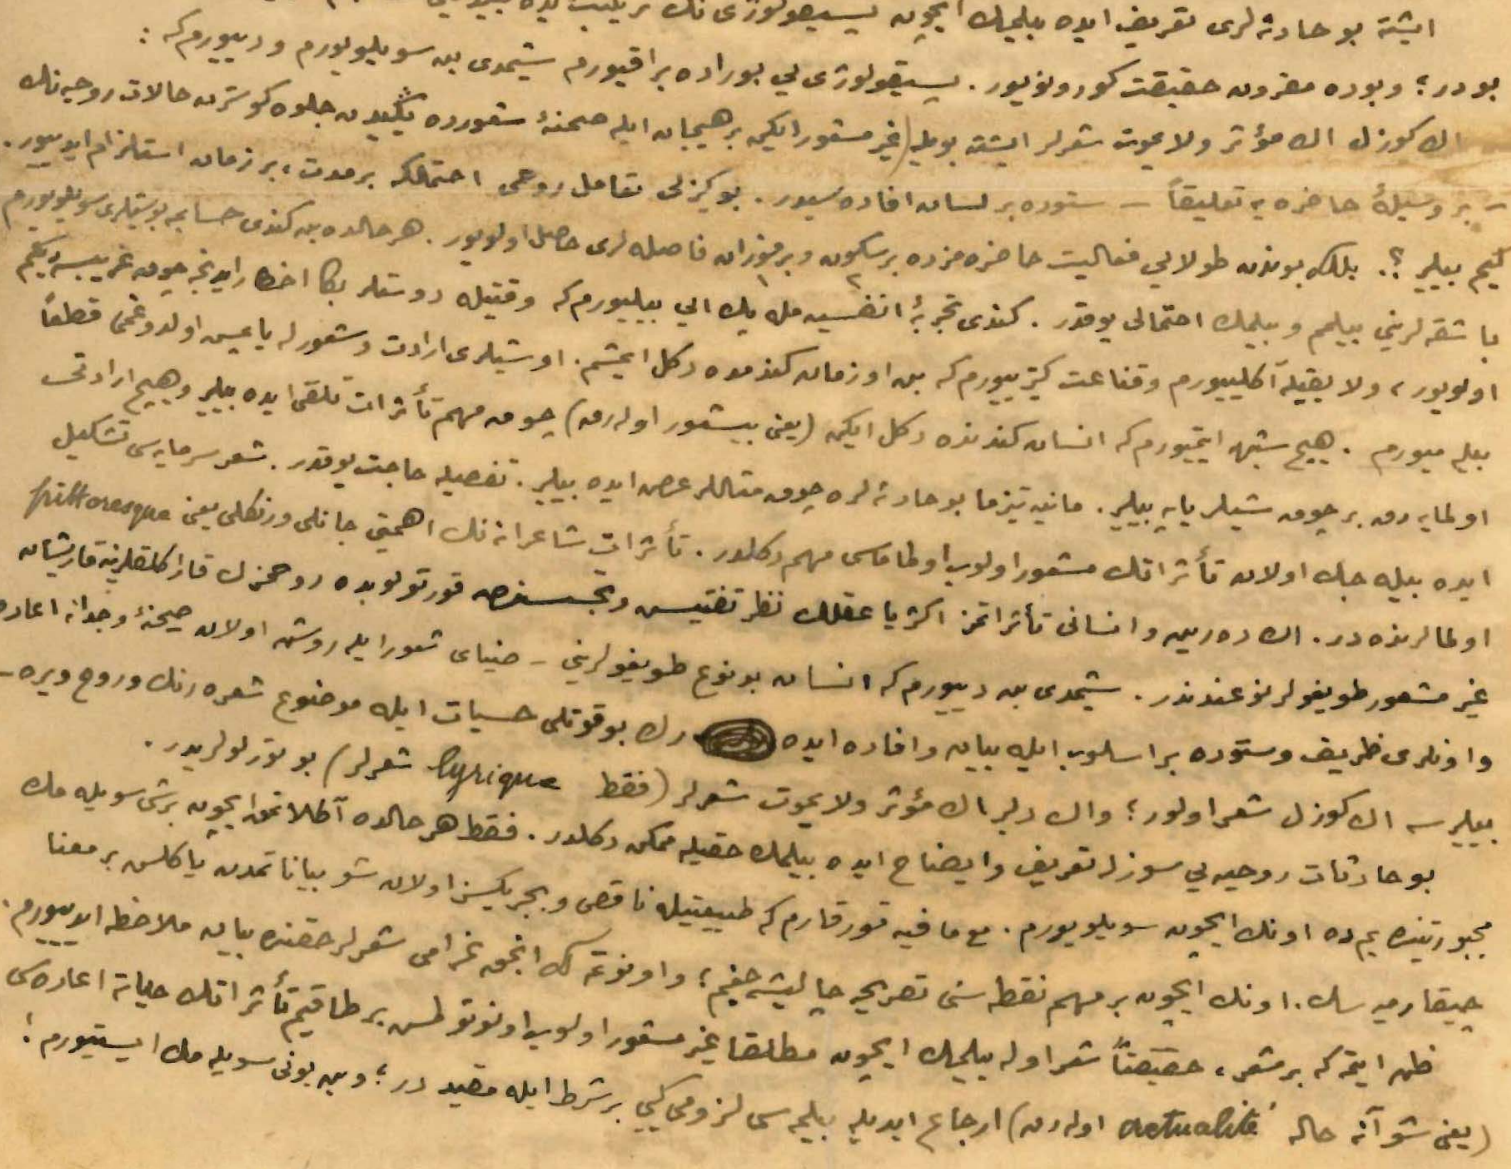 ایشته بو حادثه‌لری تعریف ایده بیلمك ایچون پسیقولوژی نك
بودر؛ وبوده مقرون حقیقت كورونیور. پسیقولوژی یی بوراده براقیورم شیمدی بن سویلیورم ودییورم كه:
اك كوزل اك مؤثر ولایموت شعرلر ایشته بویله (غیر مشعور ایكن بر هیجان ایله صحنهٔ شعورده یكیدن جلوه كوسترن حالات روحیه نك
- بر وسیلهٔ حاضره یه تعلیقاً - ستوده بر لسان افاده سیدر. بو كیزلی تعامل روحی احتمالكه بر مدت، بر زمان استلزام ایدییور.
كیم بیلیر؟. بلكه بوندن طولایی فعالیت حاضره مزده بر سكون وبر فاصله لری حاصل اولویور. هر حالده بن كندی حسابمه بو شیلری سویلیورم
باشقه لرینی بیلمم وبیلمك احتمالی یوقدر. كندی تجربهٔ انفسیه مله پك ایی بیلییورم كه وقتیله دوستلر بكا اخطار ایدنجه چوق غریبسه دیكم
اولویور، ولایقیله آكلییورم وقناعت كتیرییورم كه بن او زمان كندمده دكل ایمشم. او شیلری ارادت وشعور له یاپمش اولدوغمی قطعاً
بیلمیورم. هیچ شبهه ایتمیورم كه انسان كندنده دكل ایكن (یعنی بیشعور اوله رق) چوق مهم تأثرات تلقی ایده بیلیر وهیچ ارادتی
اولمایه رق بر چوق شیلر یاپه بیلیر. مانیه تیزما بو حادثه لره چوق مثاللر عرض ایده بیلیر. تفصیله حاجت یوقدر. شعر سرمایه سی تشكیل
ایده بیله جك اولان تأثراتك مشعور اولوب اولماماسی مهم دكلدر. تأثرات شاعرانه نك اهمیتی جانلی ورنكلی یعنی pittoresque
اولمالرنده در. اك درین وانسانی تأثراتمز اكثریا عقلك نظر تفتیش وتجسسندن قورتولوبده روحمزك قارا كلقلرینه قاریشان
غیر مشعور طویغولر نوعندندر. شیمدی بن دییورم كه انسان بو نوع طویغولرینی - ضیای شعور ایله روشن اولان صحنهٔ وجدانه اعاده
واونلری ظریف وستوده بر اسلوب ایله بیان وافاده ایده رك بو قوتلی حسیات ایله موضوع شعره رنك وروح ویره-
بیلیرسه اك كوزل شعر اولور؛ واك دلبر اك مؤثر ولایموت شعرلر (فقط lyrique شعرلر) بو تورلولریدر.
بو حادثات روحیه یی سوزله تعریف وایضاح ایده بیلمك حقیله ممكن دكلدر. فقط هر حالده آكلاتمق ایچون بر شی سویله مك
مجبوریتنده یم ده اونك ایچون سویلیورم. مع مافیه قورقارم كه طبیعتیله ناقص وبجریكسز اولان شو بیاناتمدن یاكلش بر معنا
چیقارمیه سك. اونك ایچون بر مهم نقطه سنی تصریحه چالیشه جغم؛ واونوتمه كه انجق غرامی شعرلر حقنده بیان ملاحظه ایدییورم.
ظن ایتمه كه بر شعر، حقیقتاً شعر اوله بیلمك ایچون مطلقا غیر مشعور اولوب اونوتولمش بر طاقیم تأثراتك حیاته اعاده سی
(یعنی شو آنه حاله actualité اوله رق) ارجاع ایدیله بیلمه سی لزومی كبی بر شرط ایله مقیددر؛ وبن بونی سویله مك ایستیورم؛